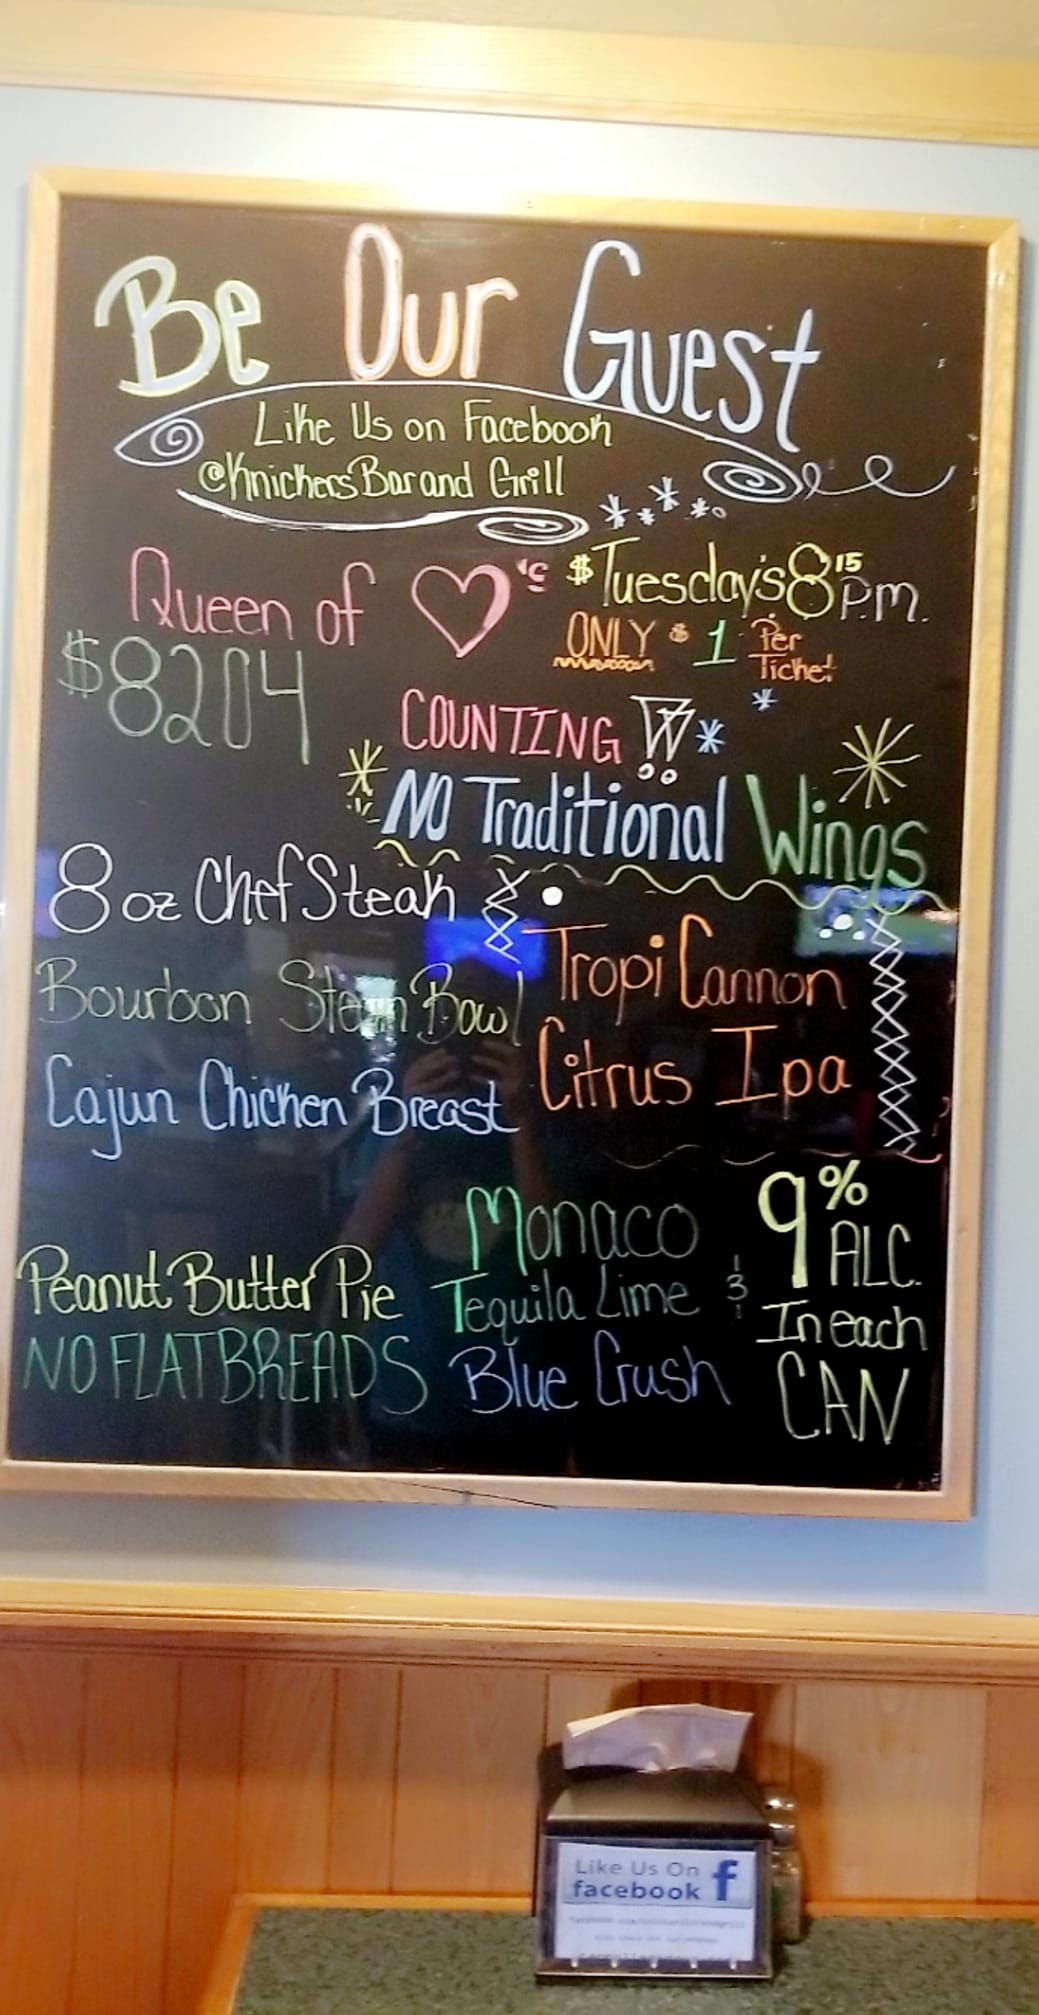 Be Our Guest
Like Us on Facebook
@Knickers Bar and Grill
Queen of 's
$Tuesday's 8:15 P.M.
ONLY $1 Per Ticket
$8204
COUNTING!!
NO Traditional Wings
8oz Chef Steak
Bourbon Steak Bowl
Cajun Chicken Breast
Tropi Cannon
Citrus Ipa
Peanut Butter Pie
NO FLATBREADS
Monaco
Tequila Lime &
Blue Crush
9% ALC.
In each
CAN
Like Us On
facebook f